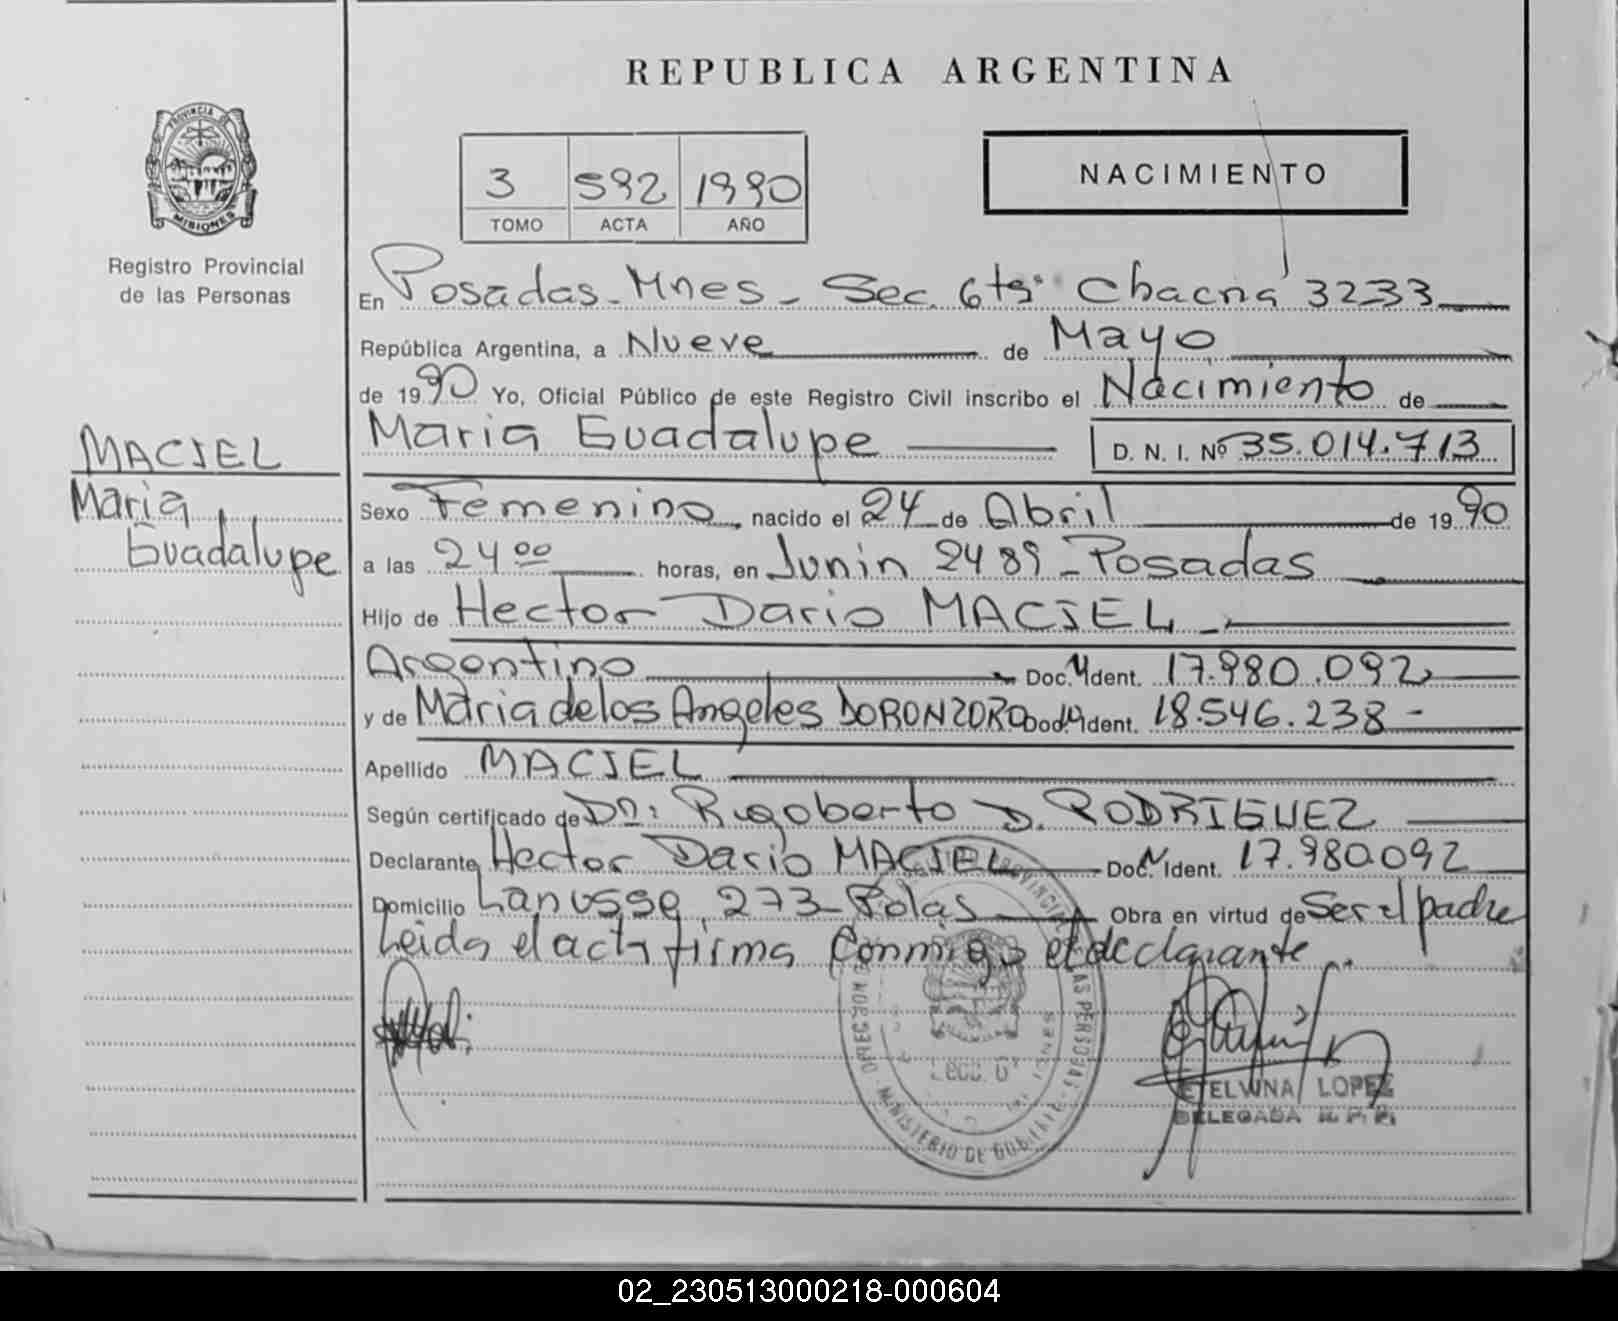 REPUBLICA ARGENTINA
PROVINCIA DE
MISIONES
Registro Provincial
de las Personas
3 592 1990
TOMO ACTA AÑO
NACIMIENTO
En Posadas - Mnes - Sec. 6ta: Chacra 3233
República Argentina, a Nueve de Mayo
de 1990 Yo, Oficial Público de este Registro Civil inscribo el Nacimiento de
Maria Guadalupe D. N. I. Nº 35.014.713
MACIEL
Maria
Guadalupe
Sexo Femenino, nacido el 24 de Abril de 1990
a las 24 00 horas, en Junin 2489 - Posadas
Hijo de Hector Dario MACIEL
Argentino Doc. Ident. 17.980.092
y de Maria de los Angeles DORONZORO Doc. Ident. 18.546.238 -
Apellido MACIEL
Según certificado de Dn: Rigoberto D. RODRIGUEZ
Declarante Hector Dario MACIEL Doc. Ident. 17.980.092
Domicilio Lanusse 273 - Pdas Obra en virtud de Ser el padre
Leida el acta firma conmigo el declarante
MINISTERIO DE
ETELVINA LOPEZ
DELEGADA R. P. P.
02_230513000218-000604